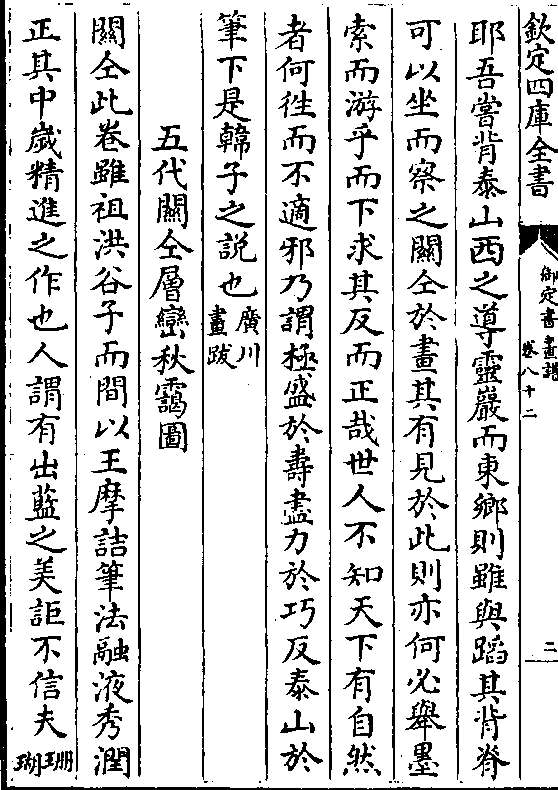 欽定四庫全書
御定書畫譜
卷八十二
二
耶吾嘗背泰山西之導靈巖而東鄉則雖與蹈其背脊
可以坐而察之關仝於畫其有見於此則亦何必舉墨
索而游乎而下求其反而正哉世人不知天下有自然
者何徃而不適邪乃謂極盛於壽盡力於巧反泰山於
筆下是韓子之説也廣川
畫跋
五代關仝層巒秋靄圖
關仝此卷雖祖洪谷子而間以王摩詰筆法融液秀潤
正其中嵗精進之作也人謂有出藍之美詎不信夫珊
瑚